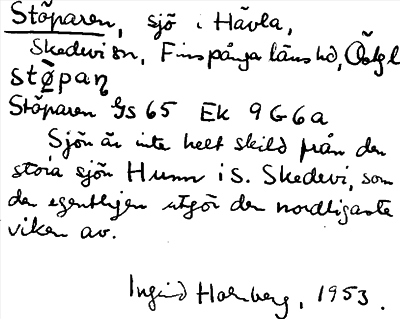 Stöparen, sjö i Hävla,
Skedevi sn, Finspånga läns hd, Östgl
stø̀paɳ
Stöparen Gs 65 Ek 9 G 6 a
Sjön är inte helt skild från den
stora sjön Hunn i S. Skedevi, som
den egentligen utgör den nordligaste
viken av.
Ingrid Holmberg, 1953.